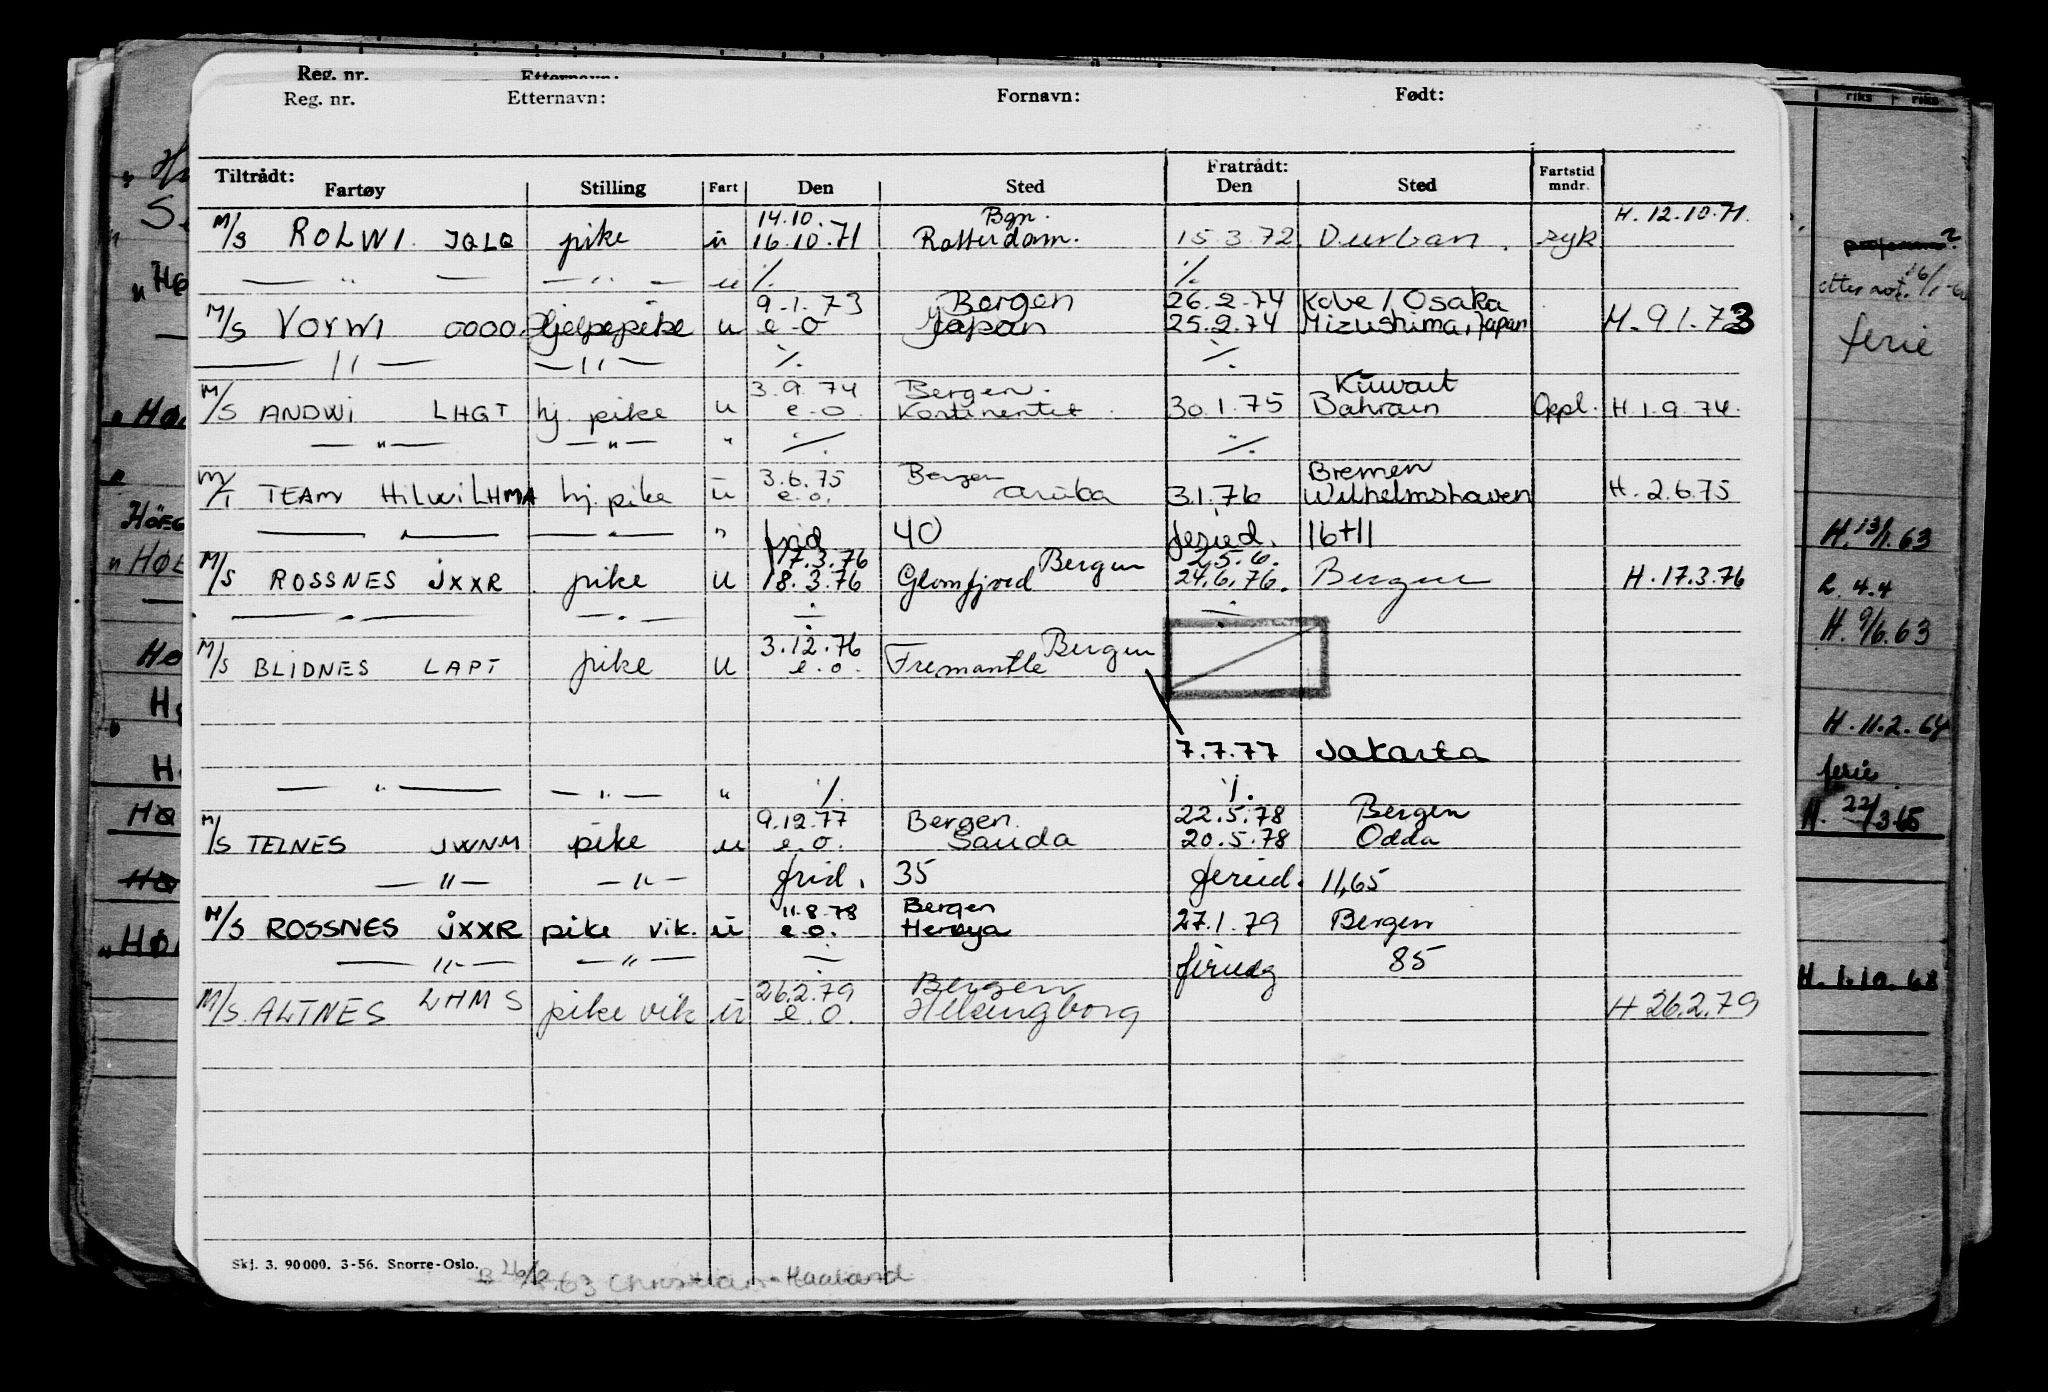 Reg. nr. Etternavn:
Reg. nr. Etternavn: Fornavn: Født:
Tiltrådt: Fratrådt:
Fartøy Stilling Fart Den Sted Den Sted Fartstid mndr.
14.10. Bgn. H. 12.10.71.
M/S ROLWI. JQLQ pike u 16.10.71 Rotterdam. 15.3.72. Durban. syk
— " — — " — u ./.  ./.
9.1.73 Bergen 26.2.74 Kobe / Osaka
M/S VORWI OOOO. Hjelpepike u e-o Japan 25.2.74 Mizushima, Japan H. 9 1. 73
— 11 — — 11 — ./. ./.
3.9.74 Bergen. Kuwait
M/S ANDWI LHGT hj. pike u e-o. Kontinentet. 30.1.75 Bahrain Oppl. H. 1.9.74.
— " — — " — " ./. ./.
3.6.75 Bergen Bremen
M/T TEAM HILWI LHMA hj. pike u e.o. aruba 3.1.76 Wilhelmshaven H. 2.6.75
— " — — " — " frid 40 feried. 16+11
17.3.76 Bergen 25.6.
M/S ROSSNES JXXR. pike u 18.3.76 Glomfjord 24.6.76. Bergen H. 17.3.76
— " — — " — ÷ ÷
3.12.76 Bergen
M/S BLIDNES LAPT pike u e.o. Fremantle
7.7.77 Jakarta
— " — — " — " ./. ./.
9.12.77 Bergen. 22.5.78 Bergen
M/S TELNES JWNM pike u e.o. Sauda 20.5.78 Odda
— " — — " — frid. 35 feried. 11,65
11.8.78 Bergen
M/S ROSSNES JXXR pike vik. u e.o. Herøya 27.1.79 Bergen
— " — — " — ÷ feriedg 85
26.2.79 Bergen
M/S. ALTNES LHMS pike vik u e.o. Helsingborg H 26.2.79
Skj. 3. 90 000. 3-56. Snorre-Oslo.
B 26/2.63 Christian Haaland
riks riks
ferie
H. 13/1.63
H. 9/6.63
H. 11.2.64
ferie
H. 22/3.65
H. 1.10.68